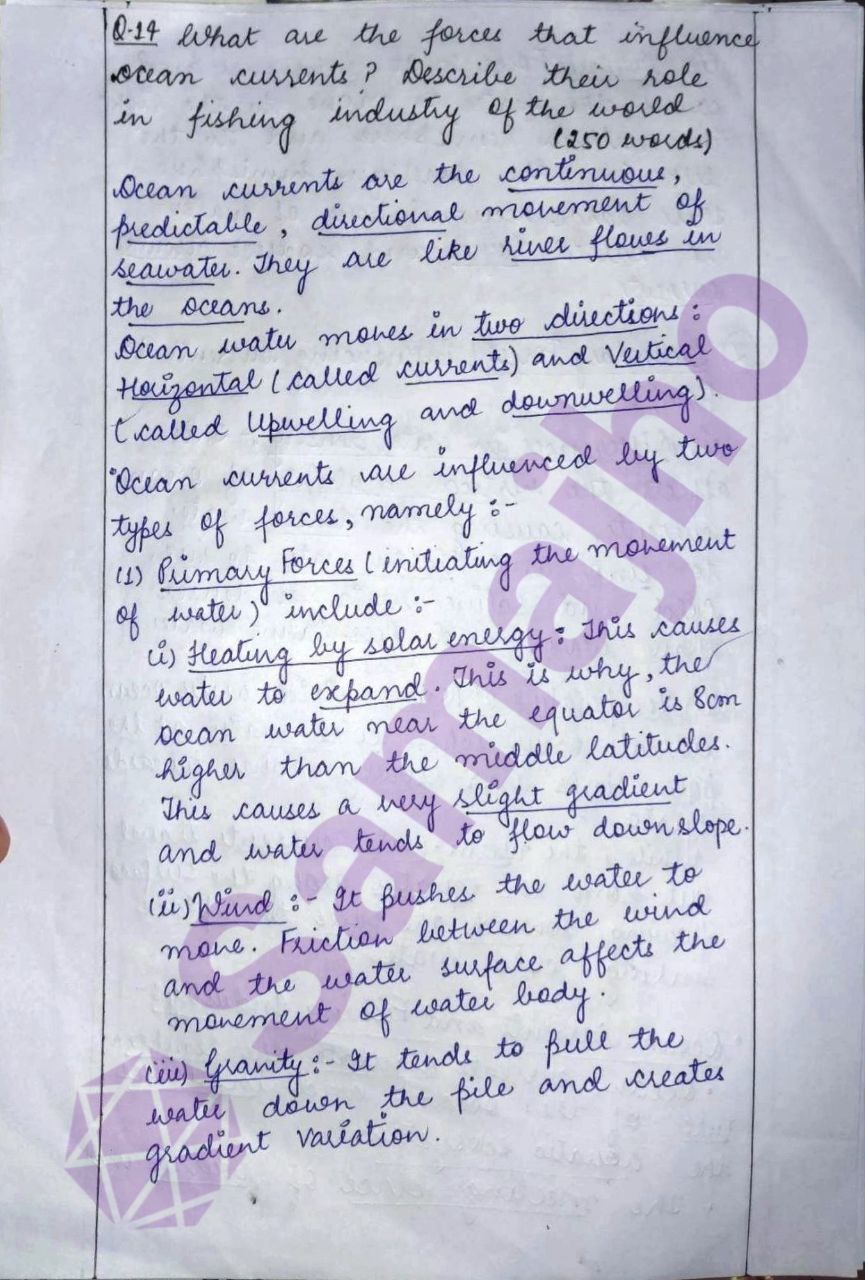 Q.14 What are the forces that influence
ocean currents? Describe their role
in fishing industry of the world
(250 words)
Ocean currents are the continuous,
predictable, directional movement of
seawater. They are like river flows in
the oceans.
Ocean water moves in two directions:
Horizontal (called currents) and Vertical
(called Upwelling and downwelling).
Ocean currents are influenced by two
types of forces, namely :-
(1) Primary Forces (initiating the movement
of water) include :-
(i) Heating by solar energy: This causes
water to expand. This is why, the
ocean water near the equator is 8cm
higher than the middle latitudes.
This causes a very slight gradient
and water tends to flow down slope.
(ii) Wind :- It pushes the water to
move. Friction between the wind
and the water surface affects the
movement of water body.
(iii) Gravity :- It tends to pull the
water down the pile and creates
gradient variation.
Samajho